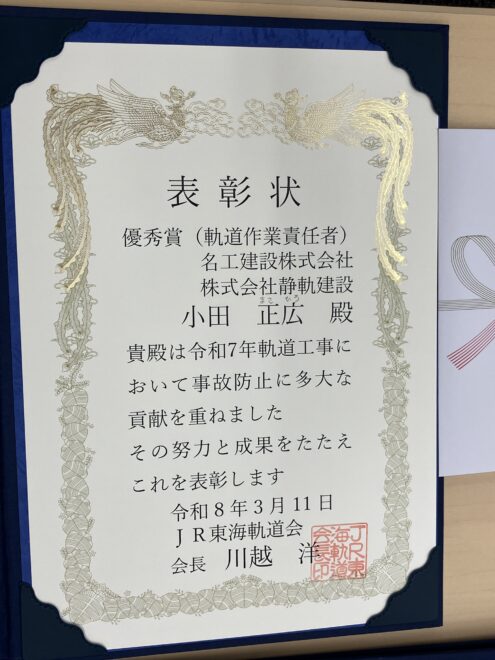 表彰状
優秀賞（軌道作業責任者）
名工建設株式会社
株式会社静軌建設
まさ ひろ
小田 正広 殿
貴殿は令和7年軌道工事に
おいて事故防止に多大な
貢献を重ねました
その努力と成果をたたえ
これを表彰します
令和8年3月11日
JR東海軌道会
会長 川越 洋
JR東
海軌道
会長印